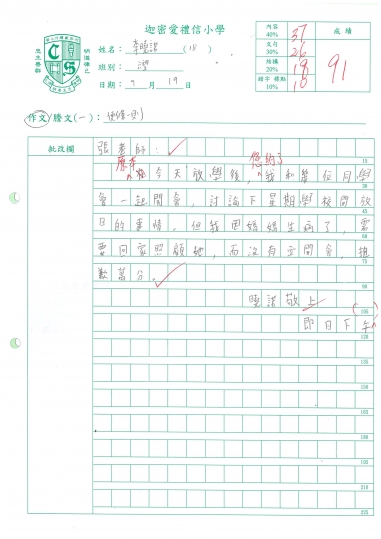 迦密愛禮信小學
姓名：李曉諾(18)
班別：
日期：9月19日
內容 40% 37
文句 30% 26
結構 20% 18
錯字 標點 10% 10
成績
91
作文/謄文(一)：便條一則
批改欄
張老師：
原本 今天放學後，您約了我和幾位同學
會一起開會，討論下星期學校開放
日的事情。但我因媽媽生病了，需
要回家照顧她，而沒有立開會，抱
歉萬分。
曉諾敬上
即日下午
15
30
45
60
75
90
105
120
135
150
165
180
195
210
225